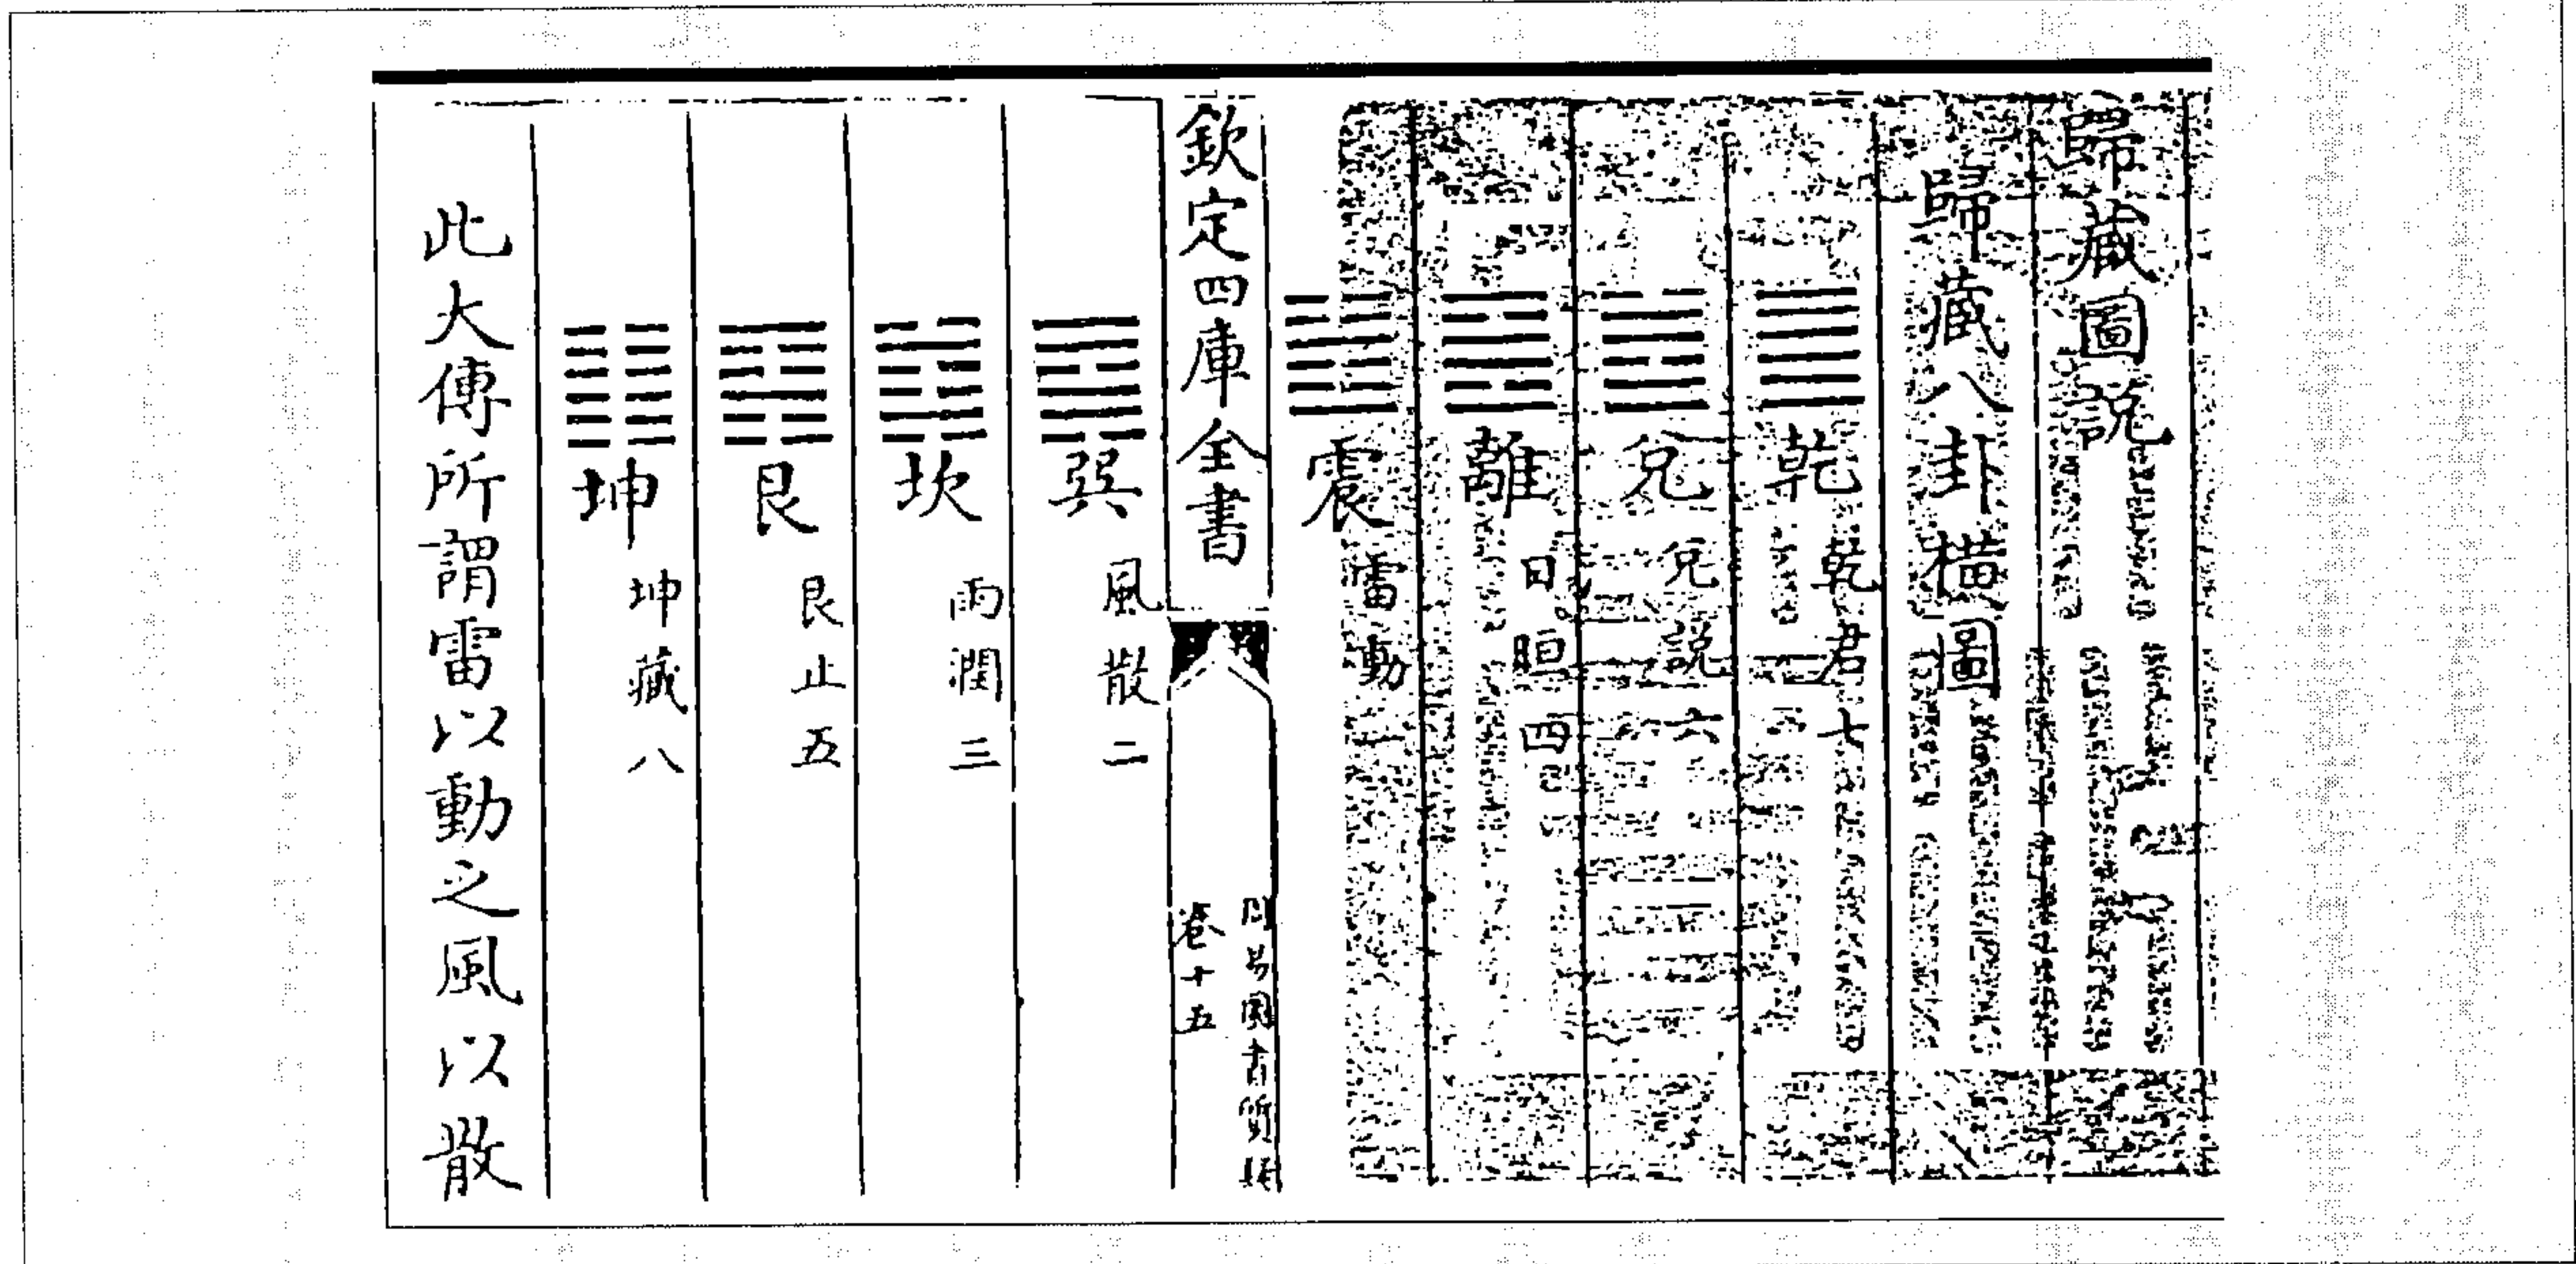 歸藏圖說
歸藏八卦橫圖
乾 乾君七
兌 兌說六
離 日晅四
震 雷動
欽定四庫全書
周易圖書質疑
卷十五
巽 風散二
坎 雨潤三
艮 艮止五
坤 坤藏八
此大傳所謂雷以動之風以散